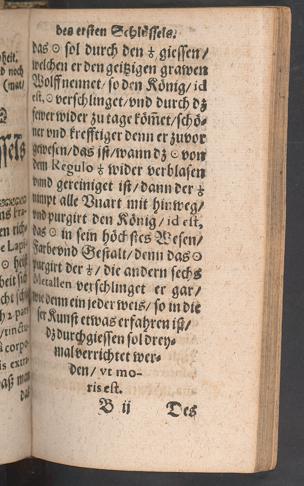 des ersten Schlüssels.
das ☉ sol durch den ♁ giessen/
welchen er den geitzigen grawen
Wolff nennet/ so den König/ id
est, ☉ verschlinget/ vnd durch dz
fewer wider zu tage kömet/ schö-
ner vnd krefftiger denn er zuvor
gewesen/ das ist/ wann dz ☉ von
dem Regulo ♁ wider verblasen
vnnd gereiniget ist/ dann der ♁
nimpt alle Vnart mit hinweg/
vnd purgirt den König/ id est,
das ☉ in sein höchstes Wesen/
Farbe vnd Gestalt/ denn das ☉
purgirt der ♁/ die andern sechs
Metallen verschlinget er gar/
wie denn ein jeder weis/ so in die
ser Kunst etwas erfahren ist/
dz durchgiessen sol drey-
mal verrichtet wer-
den/ vt mo-
ris est.
B ij Des